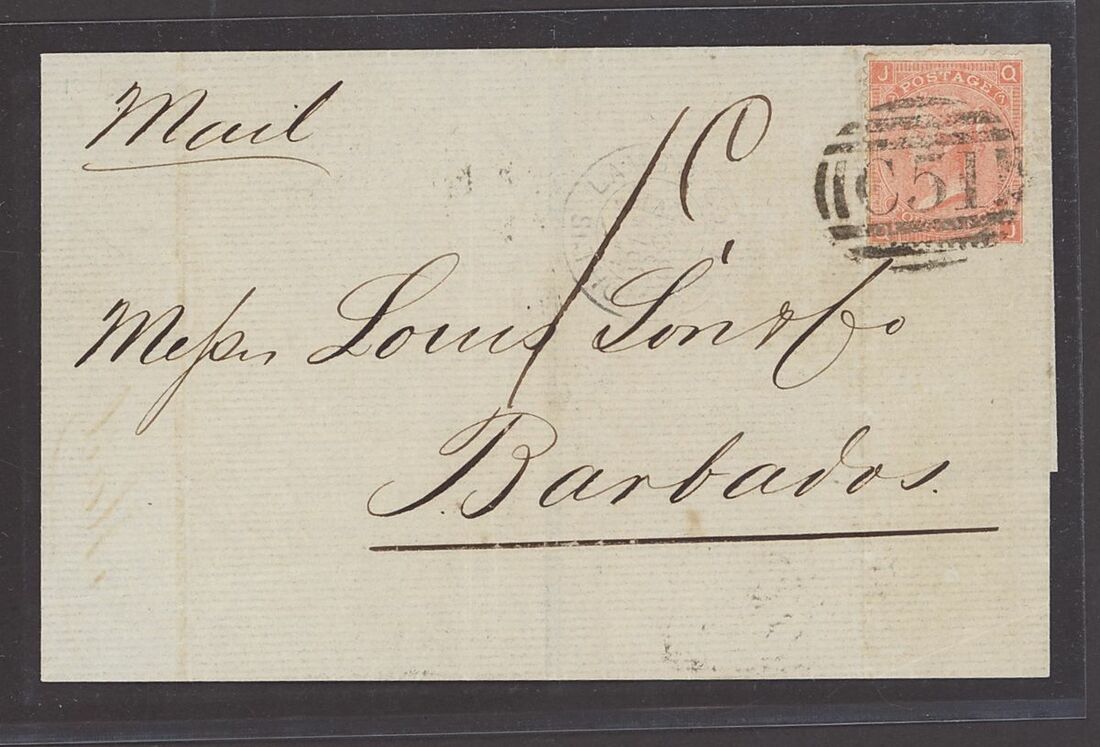 Mail
J Q
POSTAGE
C51
Q J
Messrs Louis Son & Co
Barbados.